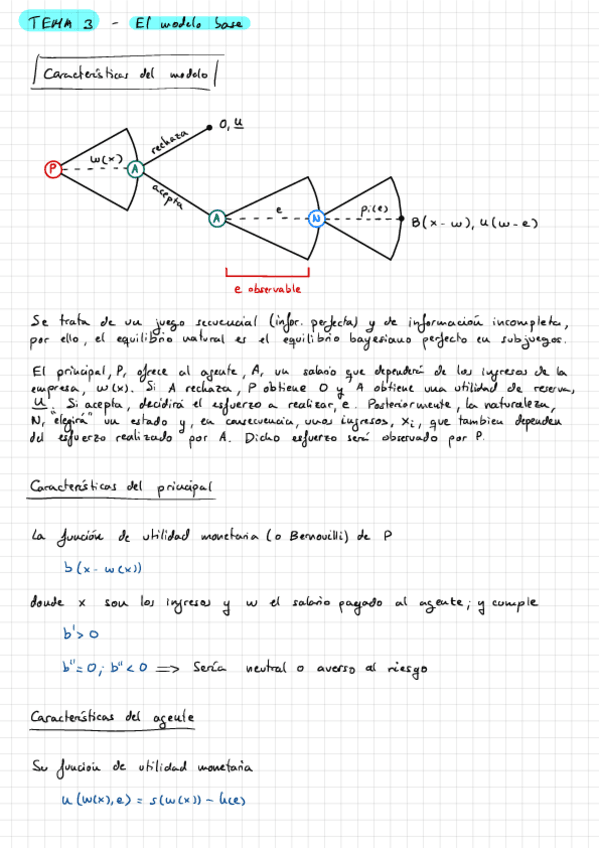 TEMA 3 - El modelo base
Características del modelo
P
w(x)
A
rechaza
0, u
acepta
A
e
N
pi(e)
B(x-w), u(w-e)
e observable
Se trata de un juego secuencial (infor. perfecta) y de información incompleta,
por ello, el equilibrio natural es el equilibrio bayesiano perfecto en subjuegos.
El principal, P, ofrece al agente, A, un salario que dependerá de los ingresos de la
empresa, w(x). Si A rechaza, P obtiene 0 y A obtiene una utilidad de reserva,
u. Si acepta, decidirá el esfuerzo a realizar, e. Posteriormente, la naturaleza,
N, "elegirá" un estado y, en consecuencia, unos ingresos, xi, que tambien dependen
del esfuerzo realizado por A. Dicho esfuerzo será observado por P.
Características del principal
La función de utilidad monetaria (o Bernouilli) de P
b(x-w(x))
donde x son los ingresos y w el salario pagado al agente; y cumple
b'>0
b''=0; b''<0 => Sería neutral o averso al riesgo
Características del agente
Su función de utilidad monetaria
u(w(x),e) = s(w(x)) - h(e)